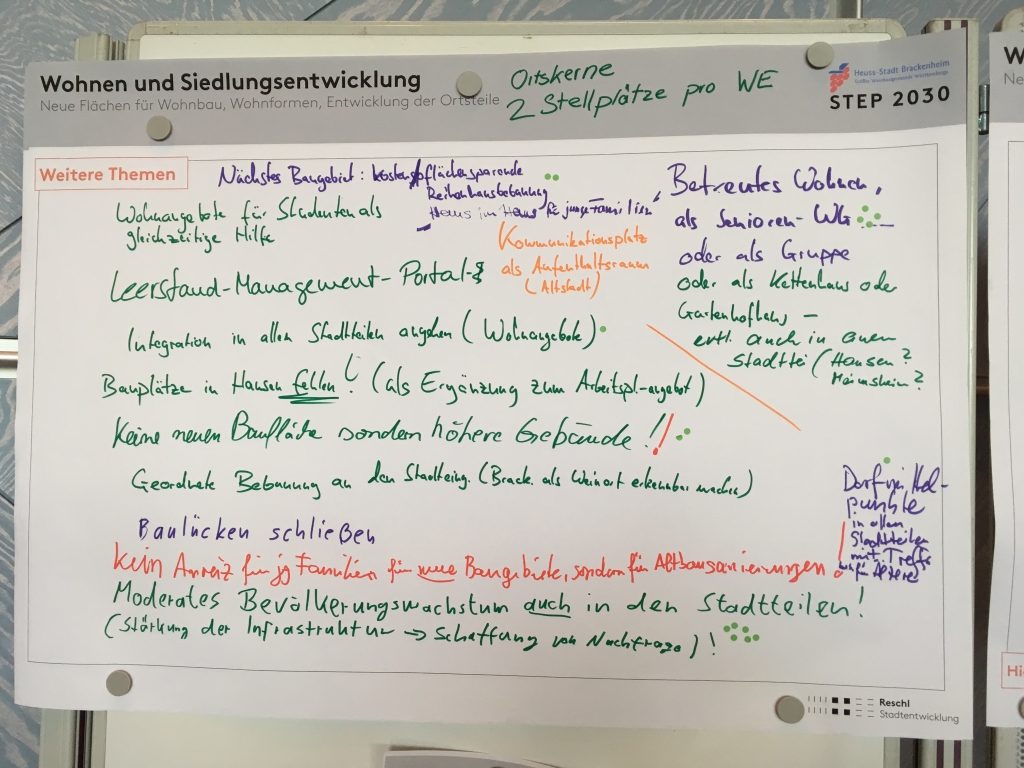 Wohnen und Siedlungsentwicklung
Neue Flächen für Wohnbau, Wohnformen, Entwicklung der Ortsteile
Ortskerne
2 Stellplätze pro WE
Heuss-Stadt Brackenheim
STEP 2030
Weitere Themen
Nächstes Baugebiet: flächensparende
Reihenhausbebauung
Haus im Haus für junge Familien
Wohnangebote für Studenten als
gleichzeitige Hilfe
Kommunikationsplatz
als Aufenthaltsraum
(Altstadt)
Leerstand-Management-Portal
Integration in allen Stadtteilen angehen (Wohnangebote)
Bauplätze in Hausen fehlen! (als Ergänzung zum Arbeitspl-angebot)
Keine neuen Baufläche sondern höhere Gebäude!!
Geordnete Bebauung an den Stadteing. (Brack. als Weinort erkennbar machen)
Baulücken schließen
Kein Anreiz für jg Familien für neue Baugebiete, sondern für Altbausanierungen!
Moderates Bevölkerungswachstum auch in den Stadtteilen!
(Stärkung der Infrastruktur → Schaffung von Nachfrage)!
Betreutes Wohnen,
als Senioren-WG
oder als Gruppe
oder als Kettenhaus oder
Gartenhofhaus –
evtl. auch in einem
Stadttei (Hausen?
Meimsheim?
Dorfmittel-
punkte
in allen
Stadtteilen
mit Treffs
für Ältere
Reschl
Stadtentwicklung
Hi